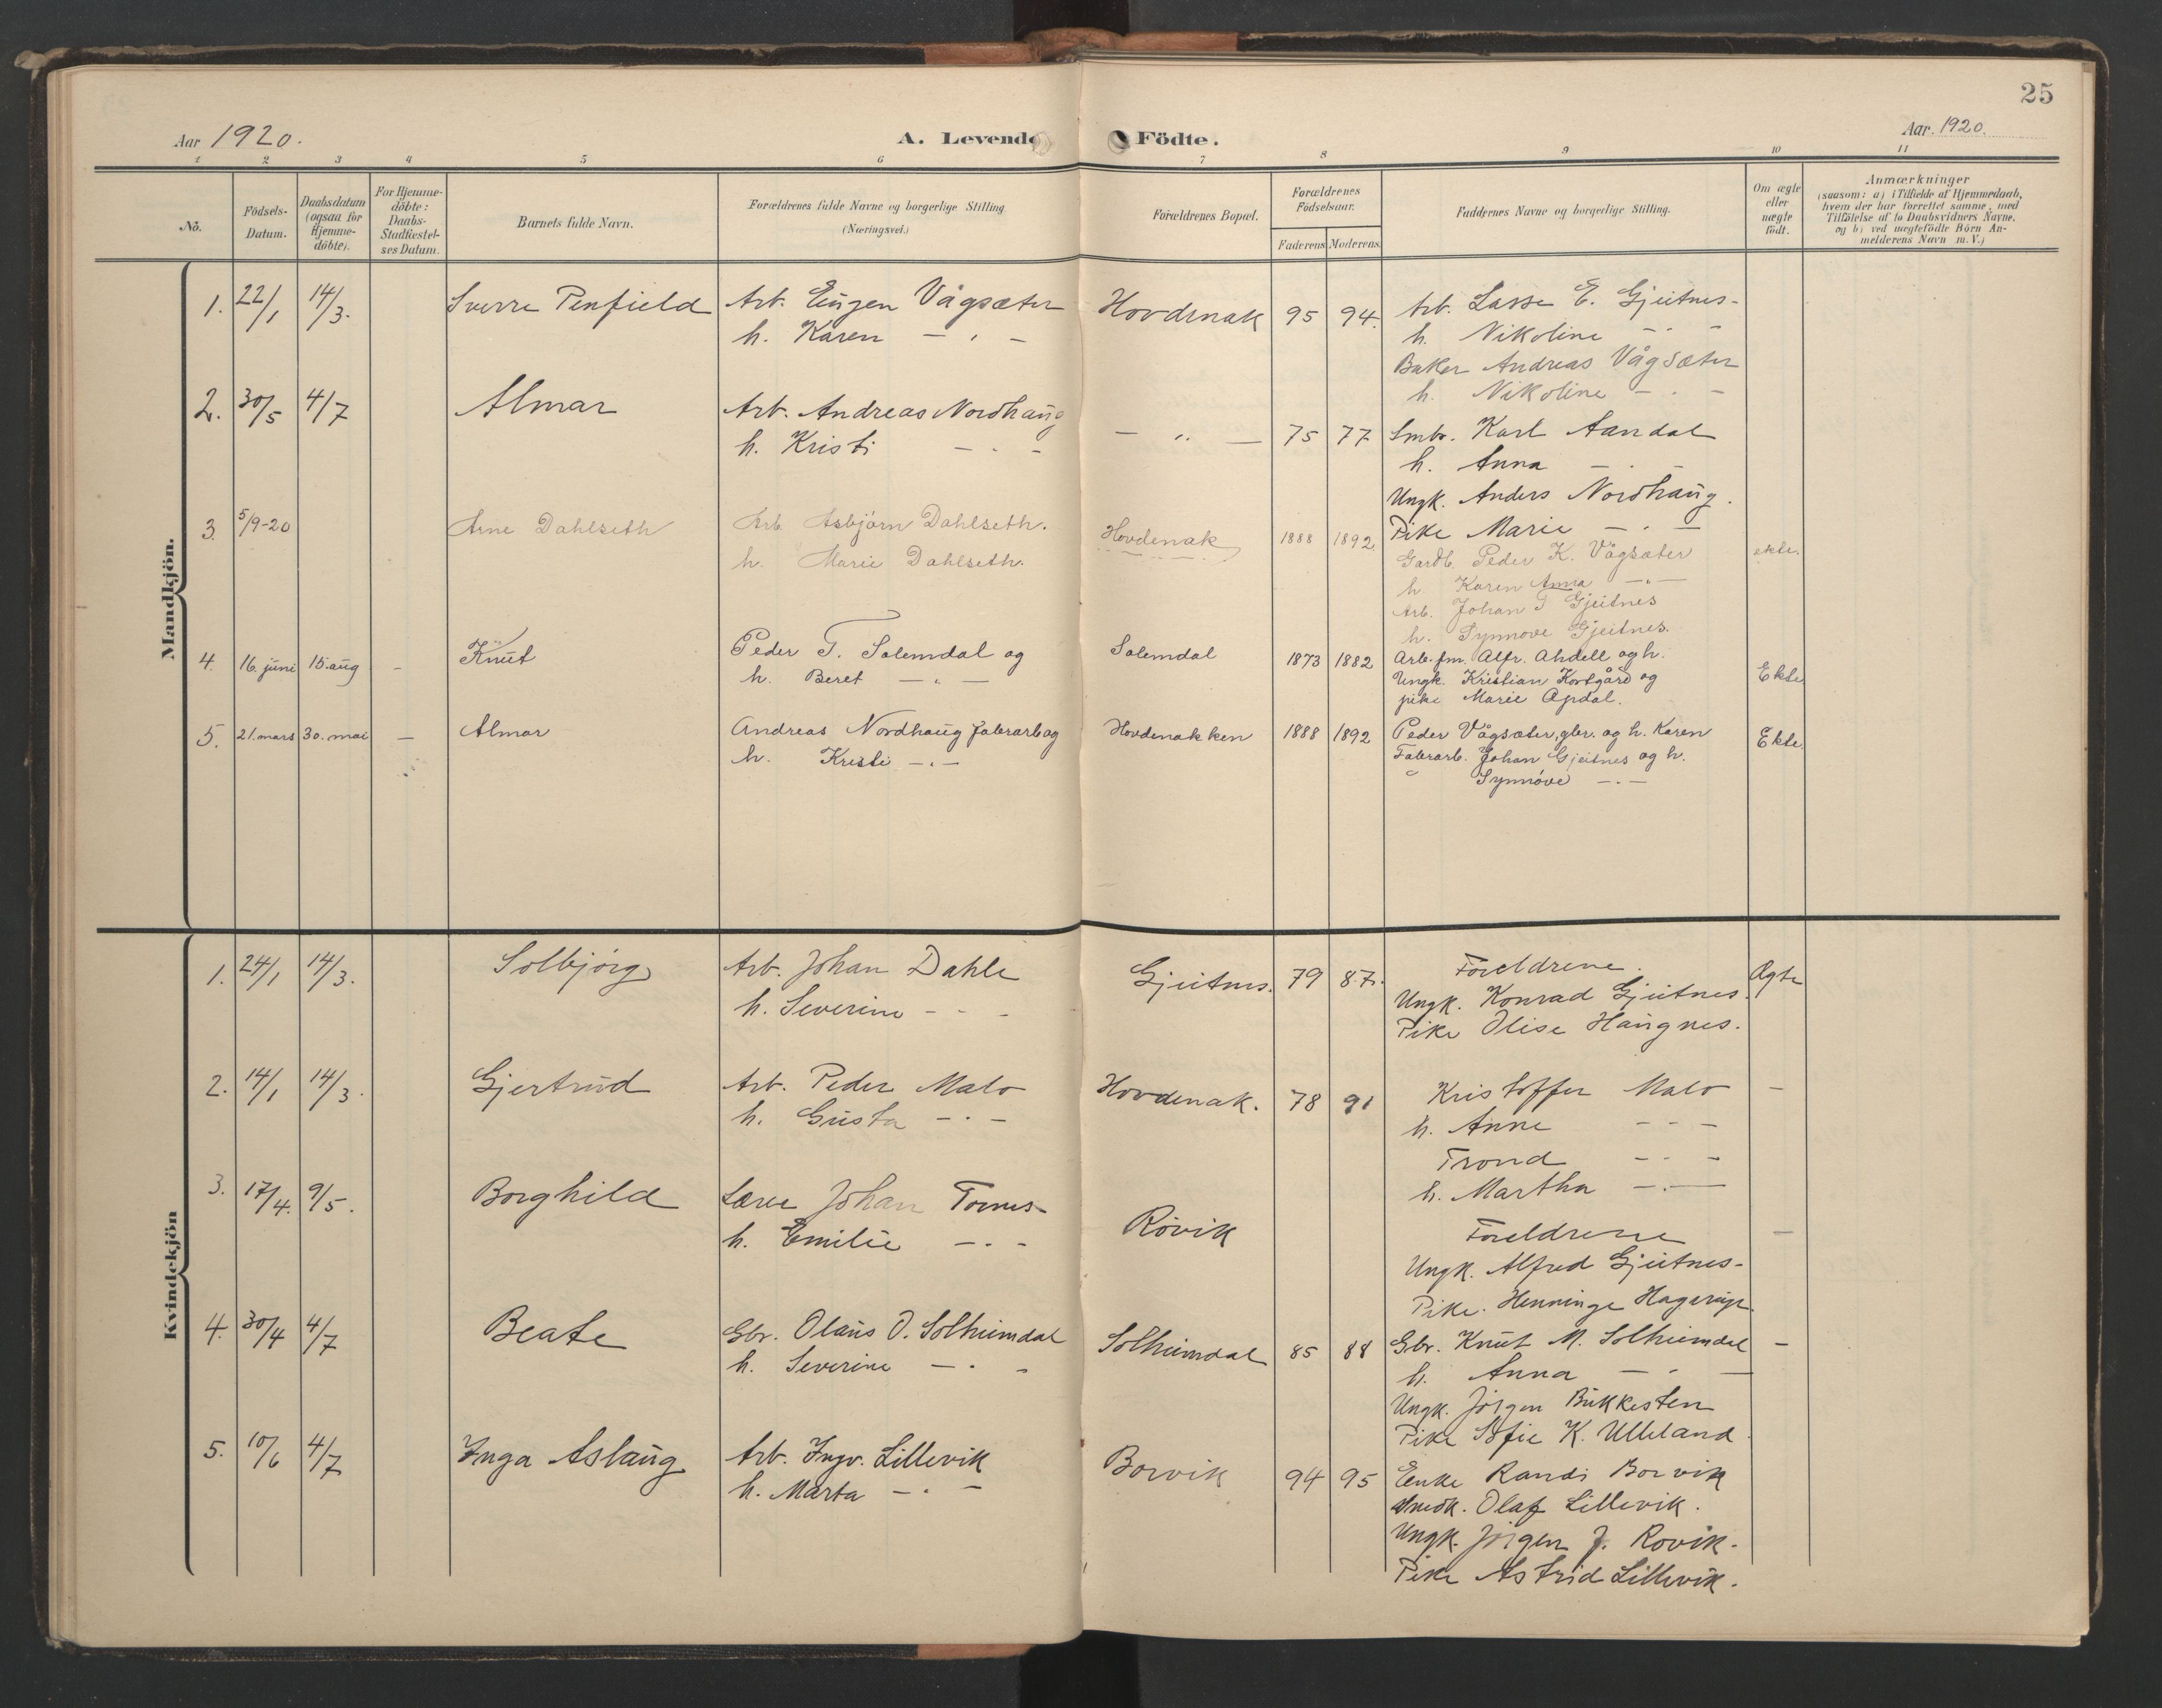 25
Aar 1920.
A. Levende Födte.
Aar. 1920.
1 2 3 4 5 6 7 8 9 10 11
No.
Födsels-Datum.
Daabsdatum (ogsaa for Hjemme-döbte).
For Hjemme-döbte: Daabs-Stadfæstel-ses Datum.
Barnets fulde Navn.
Forældrenes fulde Navne og borgerlige Stilling (Næringsvei.)
Forældrenes Bopæl.
Forældrenes Födselsaar.
Faderens Moderens
Faddernes Navne og borgerlige Stilling.
Om ægte eller uægte födt.
Anmærkninger
(saasom: a) i Tilfælde af Hjemmedaab,
hvem der har forrettet samme, med
Tilföielse af to Daabsvidners Navne.
og b) ved uægtefödte Börn An-
melderens Navn m.V.)
Mandkjön.
1. 22/1 14/3. Sverre Penfield Arb. Eugen Vågsæter Hovdenak 95 94. Arb. Lasse E. Gjeitnes-
h. Karen — " — h. Nikoline - " -
Baker Andreas Vågsæter
h. Nikoline — " —
2. 30/5 4/7 Almar Arb. Andreas Nordhaug — " — 75 77 Smbr. Karl Aandal
h. Kristi — " — h. Anna — " —
Ungk. Anders Nordhaug.
Pike Marie — " —
3. 5/9-20 Arne Dahlseth Arb. Asbjörn Dahlseth. Hovdenak 1888 1892 Gardb. Peder K. Vågsæter ekte.
h. Marie Dahlseth. h. Karen Anna — " —
Arb. Johan T Gjeitnes
h. Synnove Gjeitnes.
4. 16. juni 15. aug - Knut Peder T. Solemdal og Solemdal 1873 1882 Arb.fm. Alfr. Ahdell og h. Ekte
h. Beret — " — Ungk. Kristian Kortgård og
pike Marie Opdal.
5. 21. mars 30. mai — Almar Andreas Nordhaug fabrarb og Hovdenakken 1888 1892 Peder Vågsæter, gbr. og h. Karen Ekte.
h. Kristi — " — Fabrarb. Johan Gjeitnes og h.
Synnöve — " —
Kvindekjön
1. 24/1 14/3. Solbjörg Arb. Johan Dahle Gjeitnes. 79 87. Foreldrene. Ægte
h. Severine - " - Ungk. Konrad Gjeitnes.
Pike Olise Haugnes.
2. 14/1 14/3. Gjertrud Arb. Peder Malo Hovdenak. 78 91 Kristoffer Malo —
h. Gusta — " — h. Anne - " -
Trond - " -
h. Martha — " —
3. 17/4. 9/5. Borghild Lærer Johan Tornes- Rövik Foreldrene —
h. Emilie — " — Ungk. Alfred Gjeitnes-
Pike. Henninge Hagerup.
4. 30/4 4/7 Beate Gbr. Olaus O. Solheimdal Solheimdal 85 88 Gbr. Knut M. Solheimdal -
h. Severine — " — h. Anna — " —
Ungk. Jörgen Bukkesten
Pike Sofie K. Ulleland.
5. 10/6 4/7 Inga Aslaug Arb. Ingv. Lillevik Borvik 94 95 Enke Randi Borvik
h. Marta — " — Snedk. Olaf Lillevik.
Ungk. Jörgen J. Rovik.
Pike Astrid Lillevik.